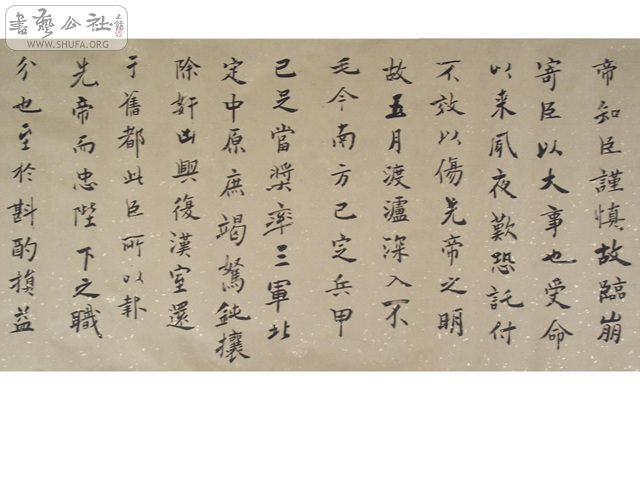 書藝公社
WWW.SHUFA.ORG
帝知臣謹慎故臨崩
寄臣以大事也受命
以来夙夜歎恐託付
不效以傷先帝之明
故五月渡瀘深入不
毛今南方已定兵甲
已足當奬率三軍北
定中原庶竭駑鈍攘
除奸凶興復漢室還
于舊都此臣所以報
先帝而忠陛下之職
分也至於斟酌損益